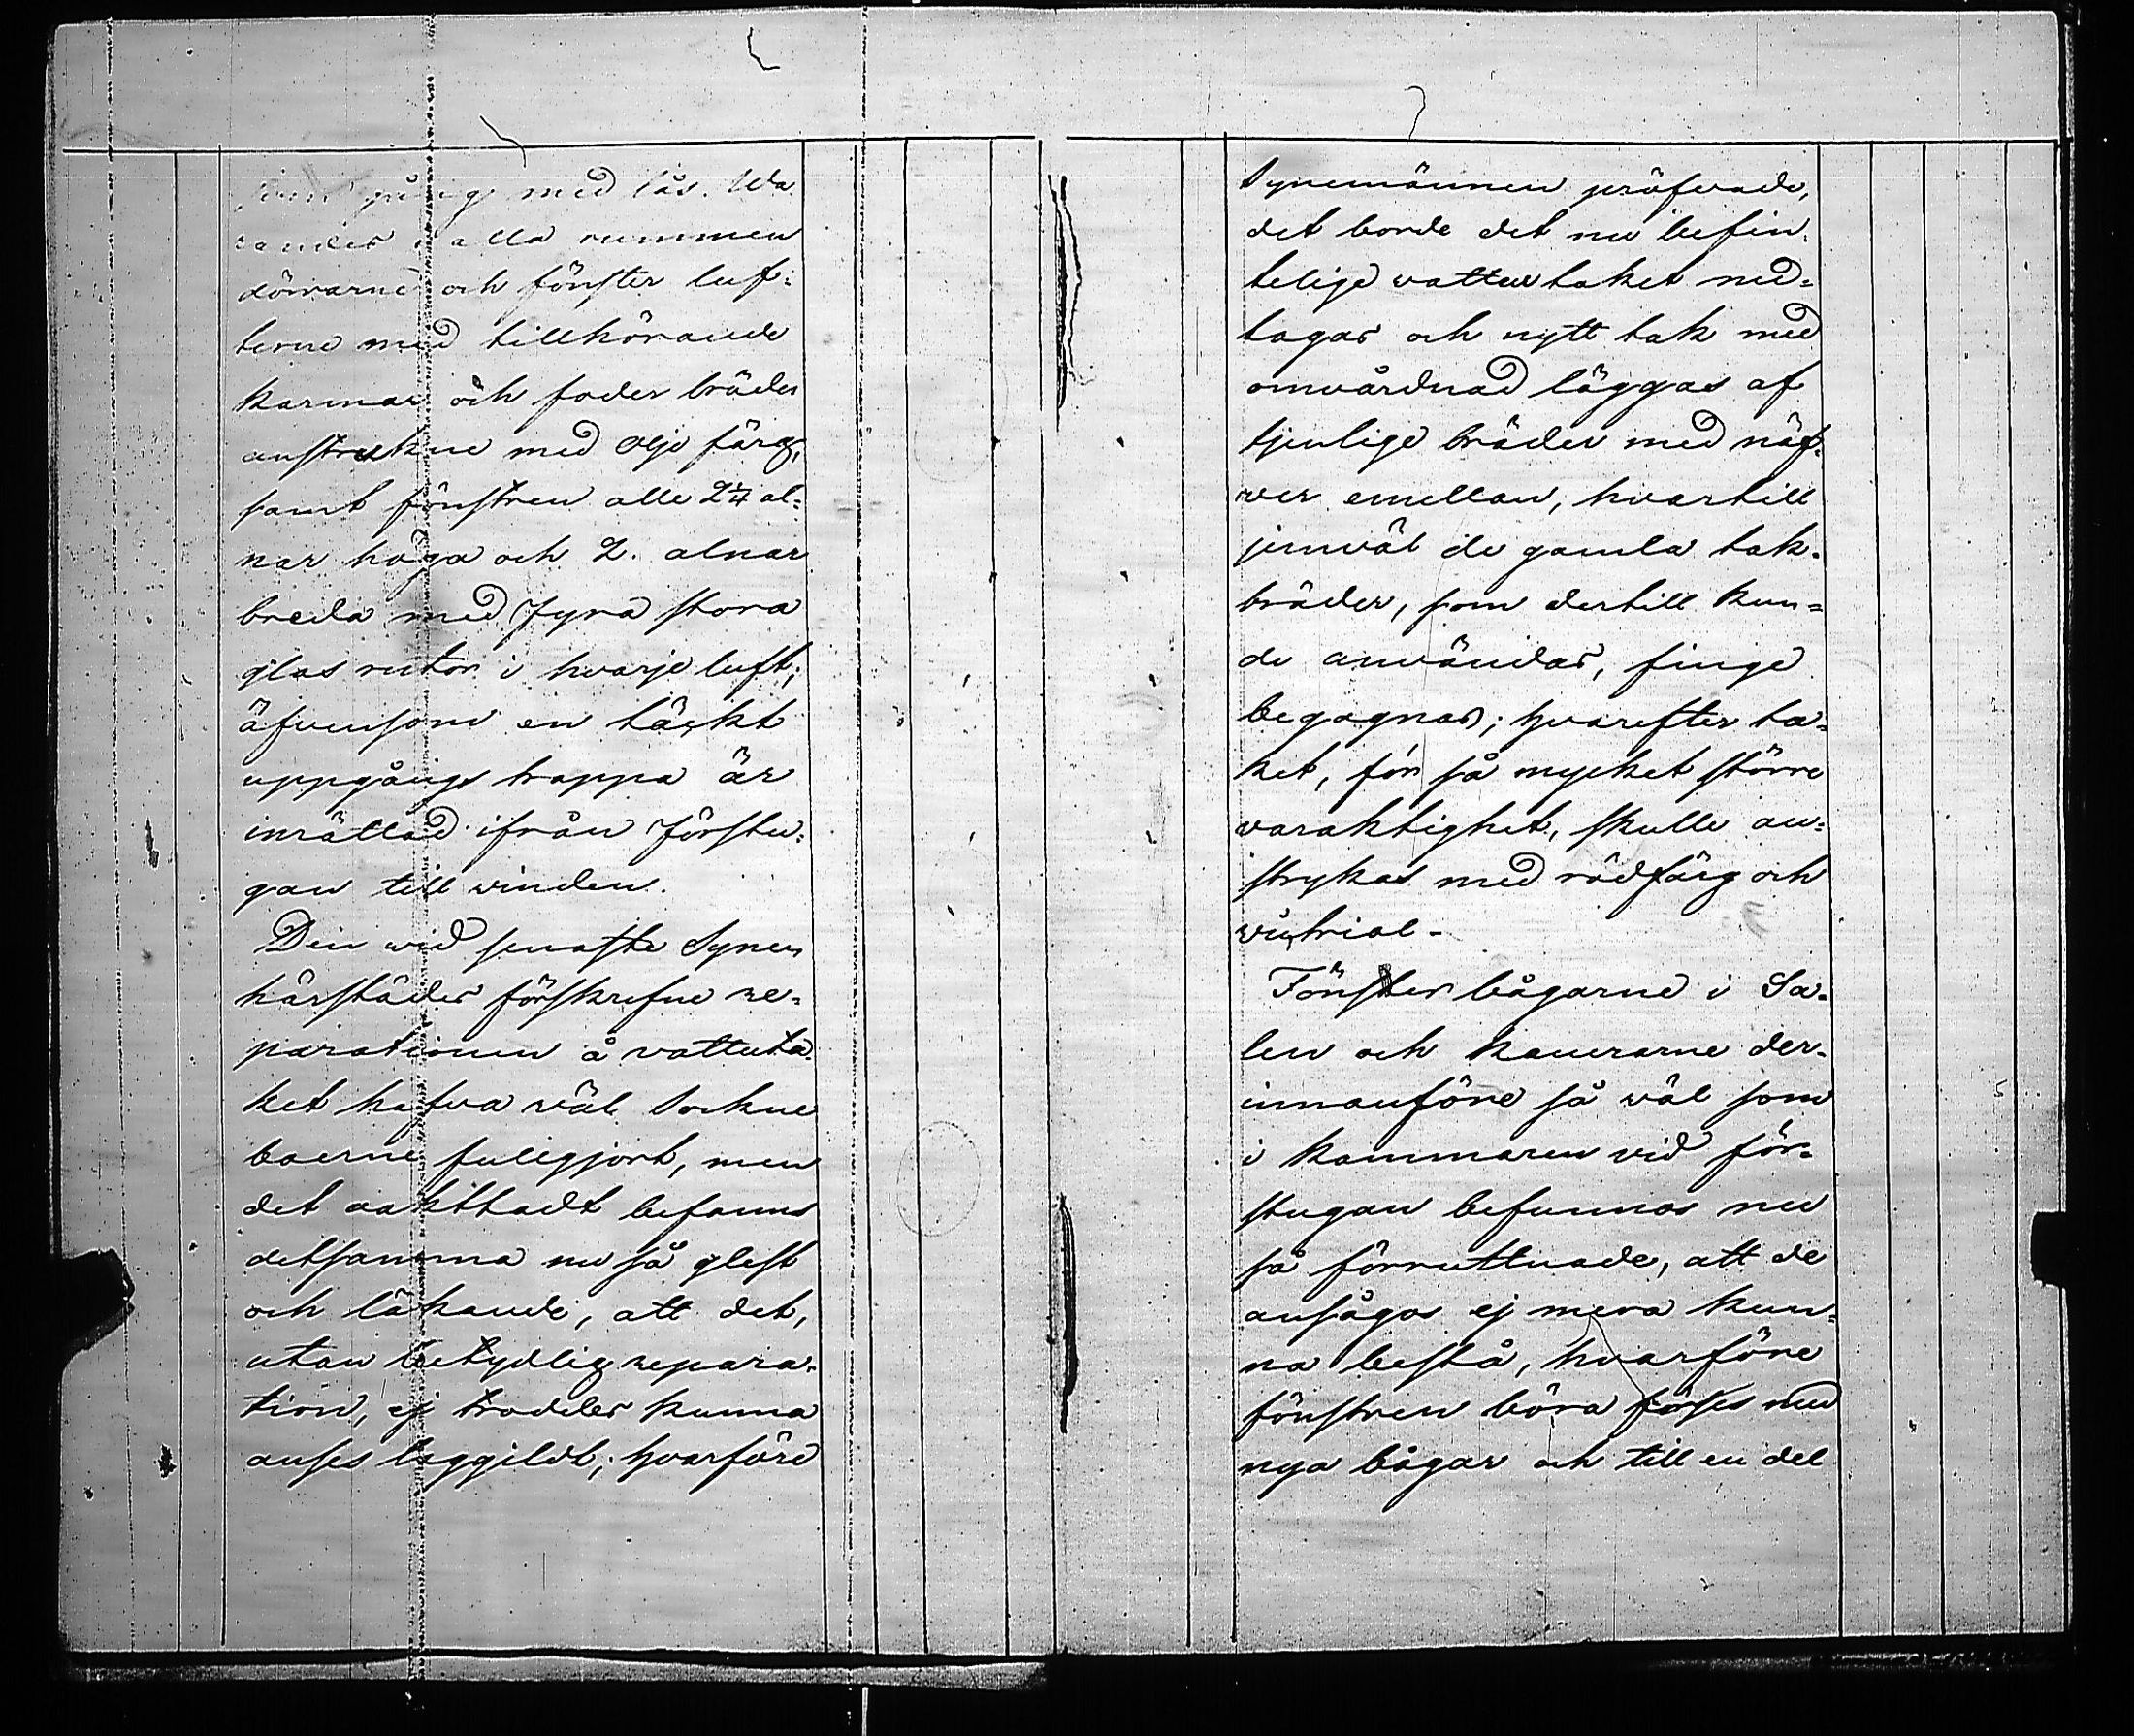 med lås. Wa
randes i alla rummen
dörrarne och fönster luf-
terne med tillhörande
karmar och foder bräder
anstrukne med olje färg,
samt fönstren alle 2 1/4 al-
nar höga och 2. alnar
breda med fyra stora
glas rutor i hvarje luft;
äfvensom en täckt
uppgångs trappa är
inrättad ifrån förstu-
gan till winden.
Den wid senaste Synen
härstädes förskrefne re-
parationen å vattuta-
ket hafva väl Sockne
boerne fullgjort, men
det oaktadt befanns
detsamma nu så glest
och läkande, att det,
utan betydlig repara-
tion, ej troddes kunna
anses laggildt; hvarföre
Synemännen pröfvade,
det borde det nu befin-
telige vattutaket ned-
tagas och nytt tak med
omvårdnad läggas af
tjenlige bräder med näf-
ver emellan, hvartill
jemväl de gamla tak-
bräder, som dertill kun-
de användas, finge
begagnas; hvarefter ta-
ket, för så mycket större
varaktighet, skulle an-
strykas med rödfärg och
victrial-
Fönster bågarne i Sa-
len och kamrarne der-
innanföre så wäl som
i kammaren vid för-
stugan befunnos nu
så förruttnade, att de
ansågos ej mera kun-
na bestå, hvarföre
fönstren böra förses med
nya bågar och till en del